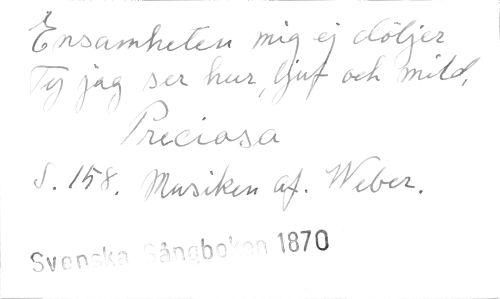 Ensamheten mig ej döljer
Ty jag ser hur, ljuf och mild,
Preciosa
S. 158. Musiken af. Weber.
Svenska Sångboken 1870